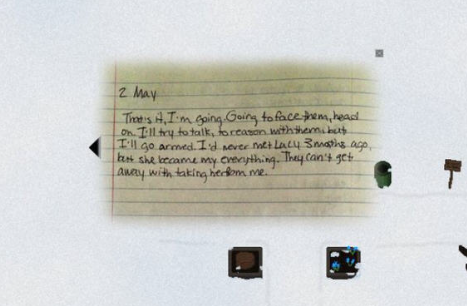 2 May
That's it, I'm going. Going to face them, head
on. I'll try to talk, to reason with them, but
I'll go armed. I'd never met Lacy 3 months ago,
but she became my everything. They can't get
away with taking her from me.